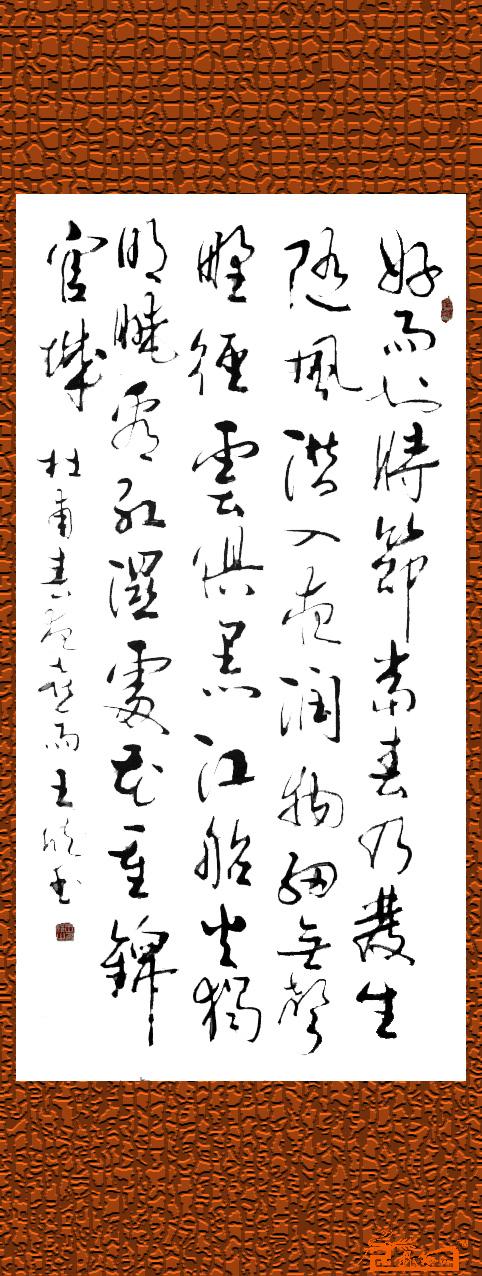 好雨知時節當春乃發生
随風潜入夜润物細無聲
野徑雲俱黑江船火獨
明曉看紅濕處花重錦
官城 杜甫春夜喜雨 王